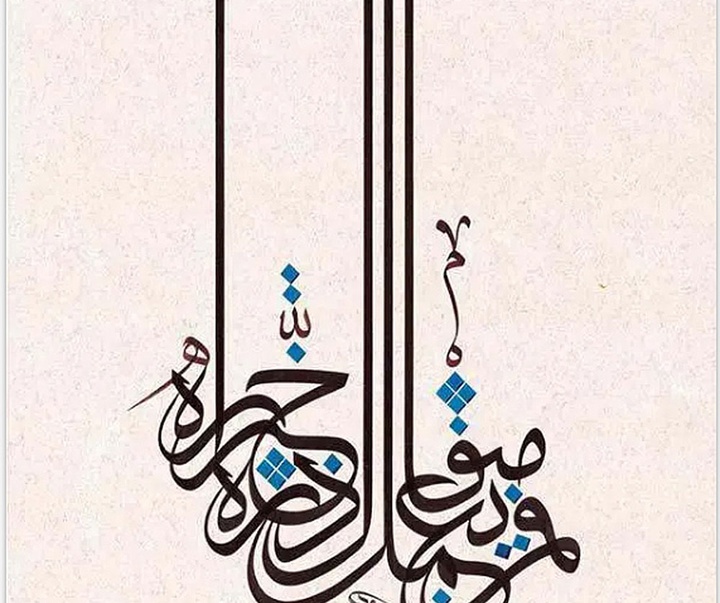 فمن يعمل مثقال ذرة خيرا يره